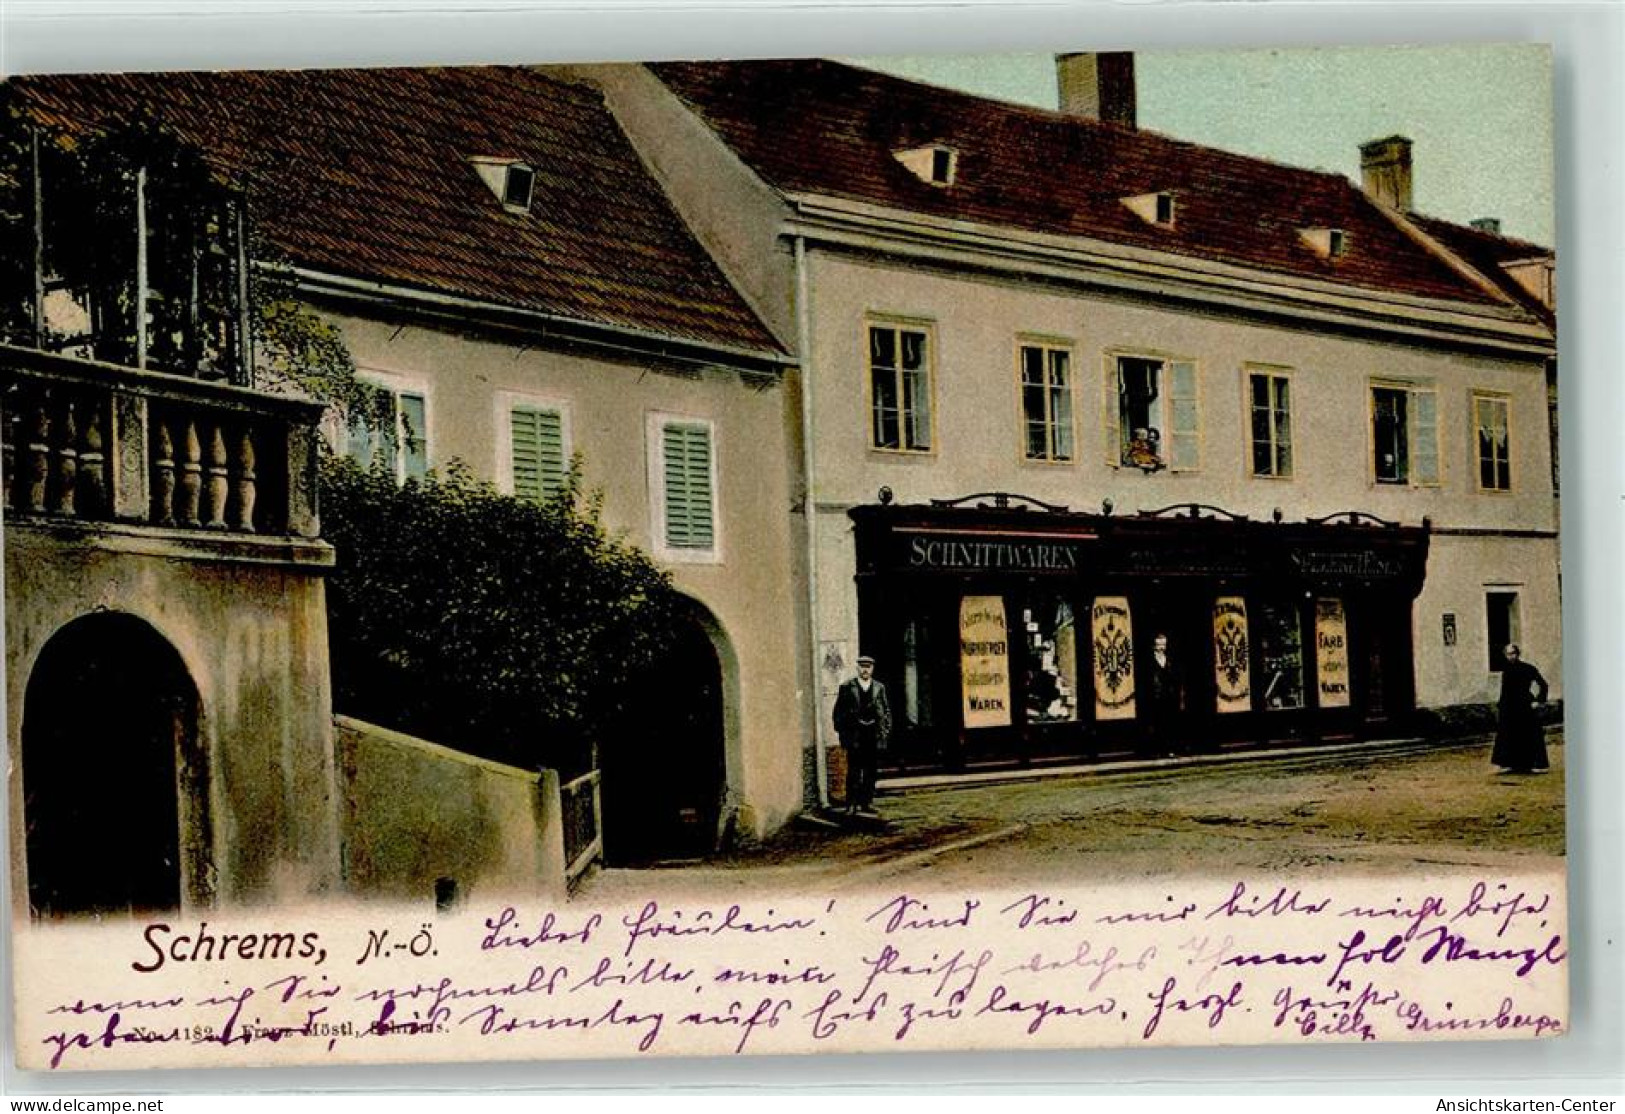 SCHNITTWAREN
NÜRNBERGER
WAREN.
FARB
WAREN.
Schrems, N.-Ö.
Liebes Fräulein! Sind Sie mir bitte nicht böse,
wenn ich Sie nochmals bitte, mein Fleisch welches Ihnen Frl Wenzl
geben wird, bis Sonntag aufs Eis zu legen. Herzl. Grüße
Cilly Grimberger
No. 1182. Franz Möstl, Schrems.
Ansichtskarten-Center